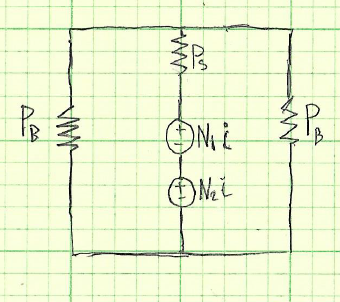 P_S
P_B
N₁i
P_B
N₂i